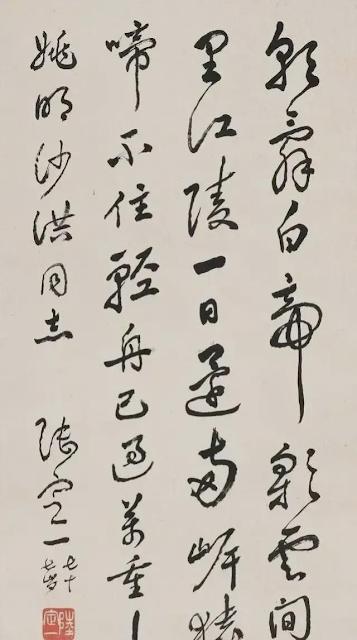 朝辭白帝彩雲間
里江陵一日還兩岸猿
啼不住輕舟已過萬重
姚明沙洪同志
陸定一
陸定一